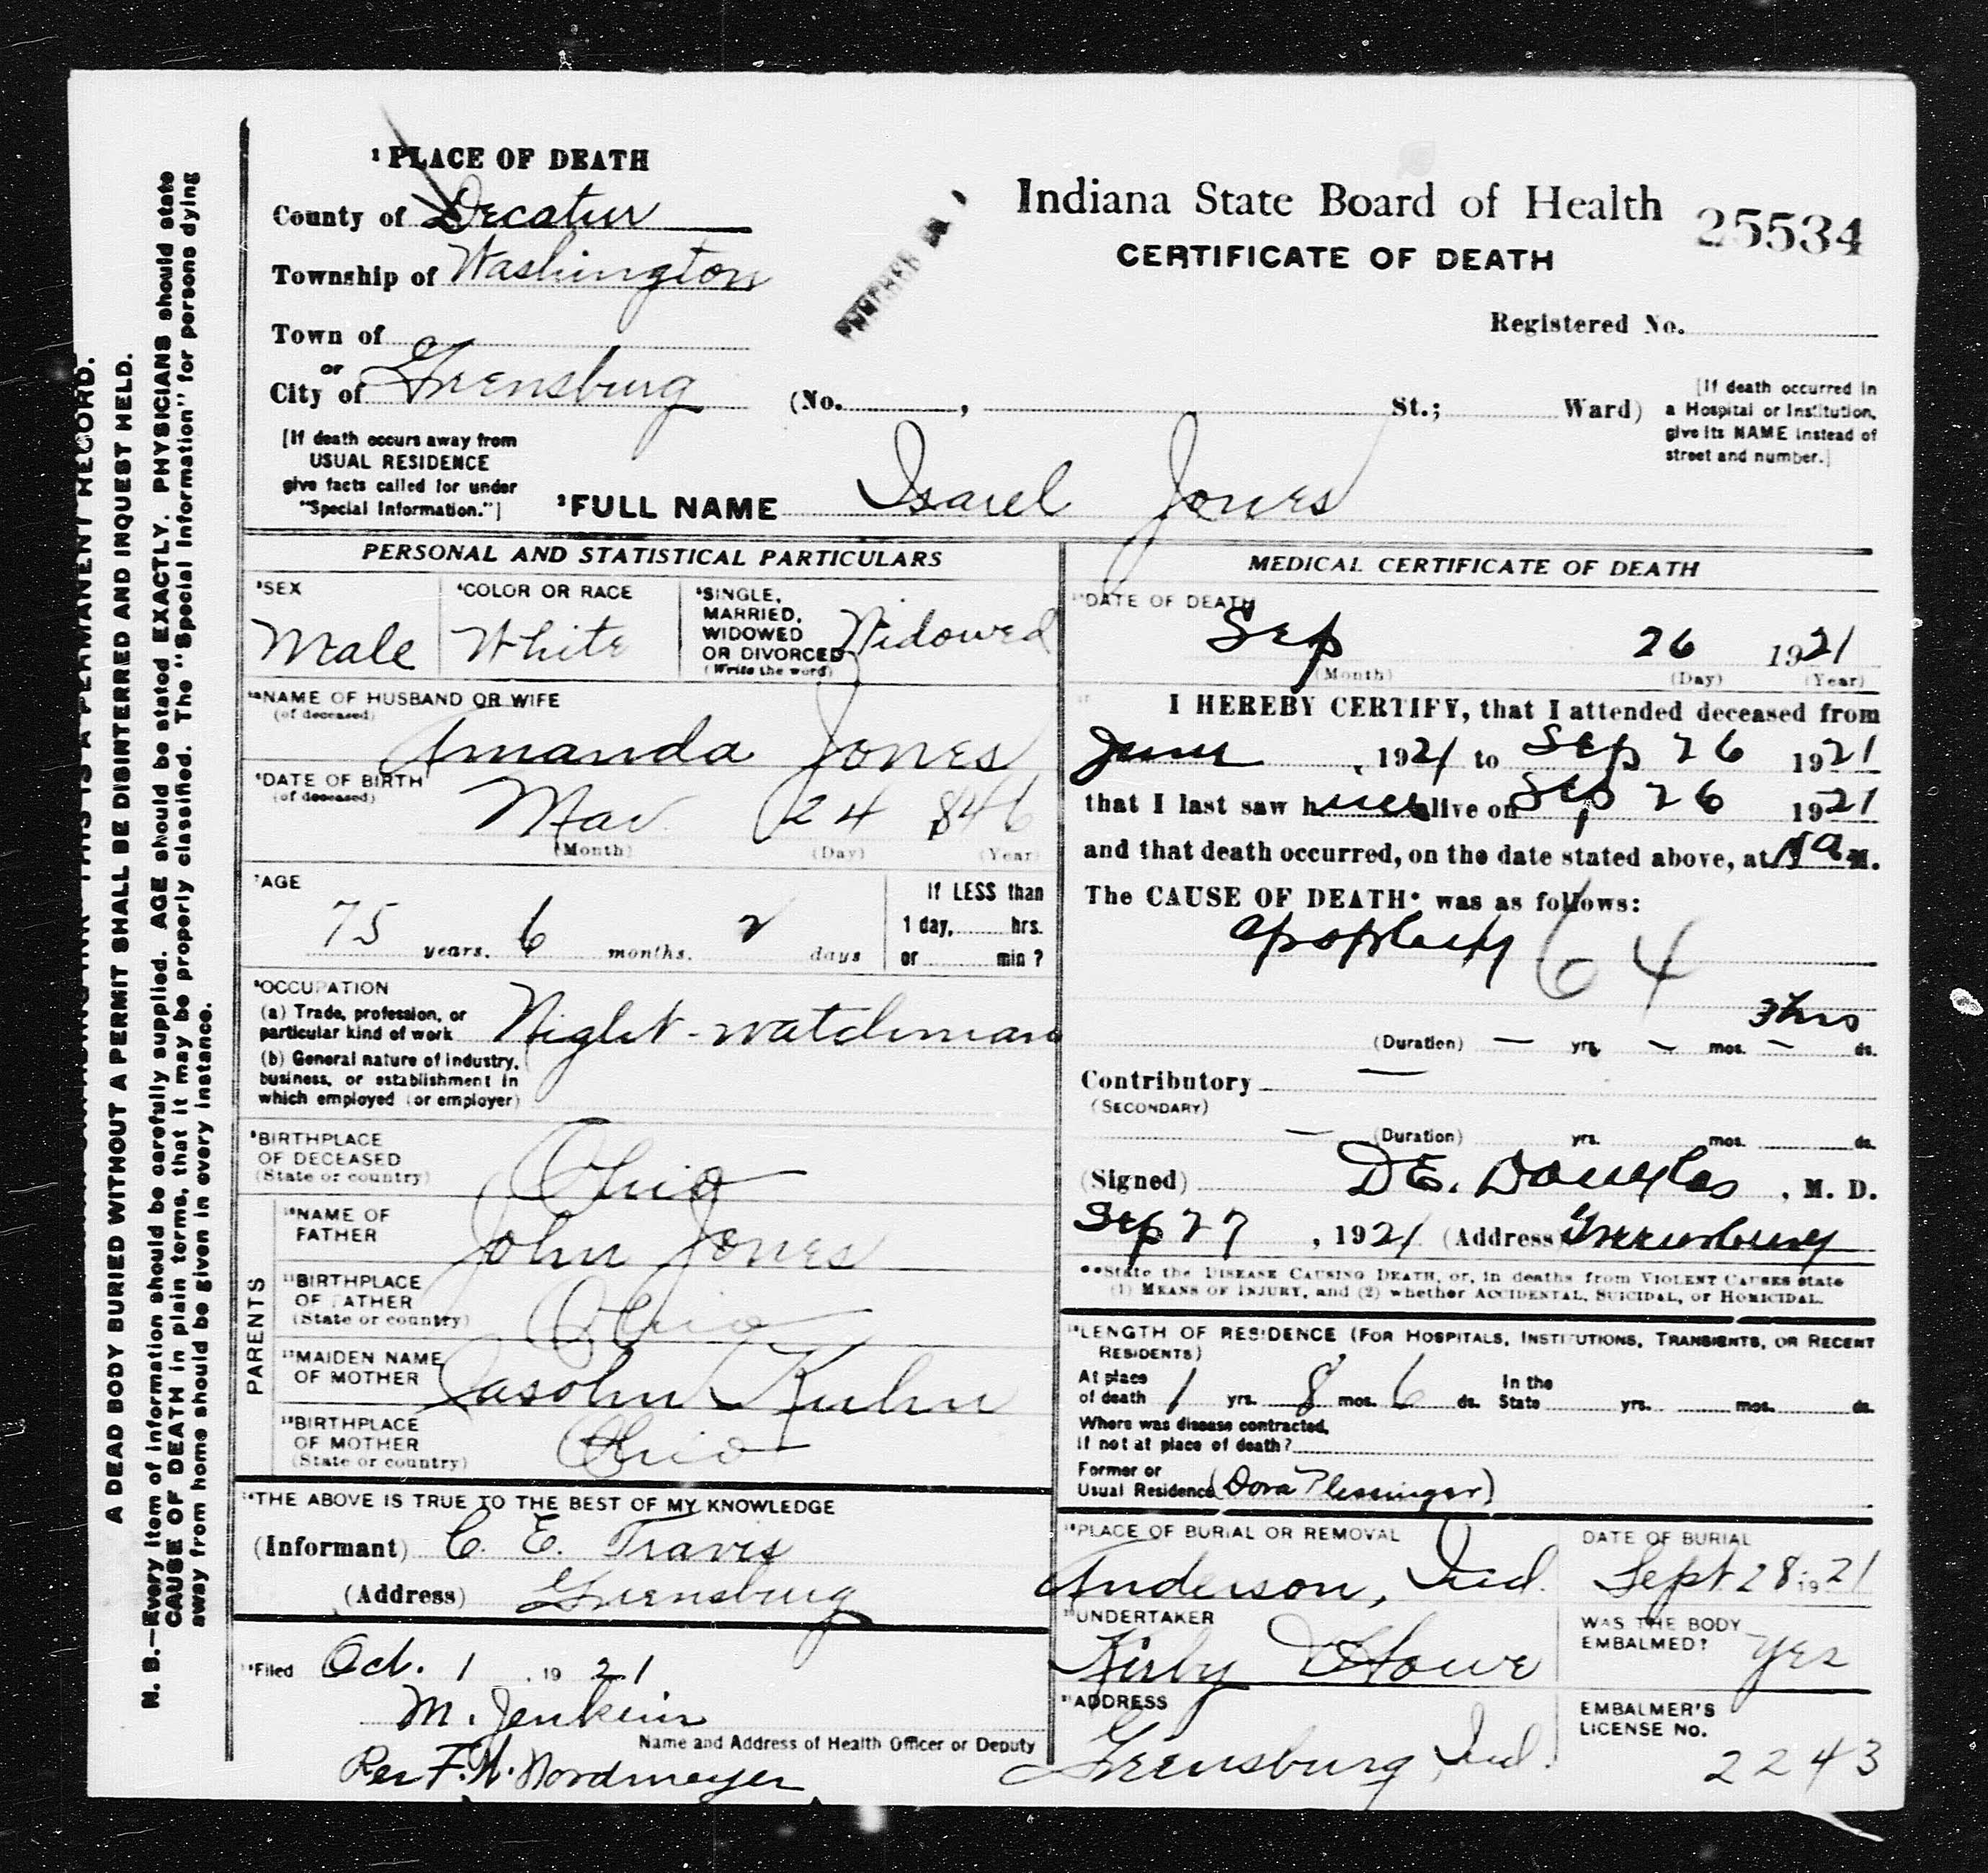 ¹ PLACE OF DEATH
County of Decatur
Township of Washington
Town of
or
City of Greensburg
[If death occurs away from
USUAL RESIDENCE
give facts called for under
"Special Information."]
Indiana State Board of Health
25534
CERTIFICATE OF DEATH
Registered No.
(No. , St.; Ward)
[If death occurred in
a Hospital or Institution,
give its NAME instead of
street and number.]
²FULL NAME Isarel Jones
PERSONAL AND STATISTICAL PARTICULARS
³SEX
Male
⁴COLOR OR RACE
White
⁵SINGLE,
MARRIED,
WIDOWED
OR DIVORCED
(Write the word)
Widowed
NAME OF HUSBAND OR WIFE
(of deceased)
Amanda Jones
⁶DATE OF BIRTH
(of deceased)
Mar 24 846
(Month) (Day) (Year)
⁷AGE
75 years. 6 months. 2 days
If LESS than
1 day, hrs.
or min ?
⁸OCCUPATION
(a) Trade, profession, or
particular kind of work
Night-watchman
(b) General nature of industry,
business, or establishment in
which employed (or employer)
⁹BIRTHPLACE
OF DECEASED
(State or country)
Ohio
PARENTS
¹⁰NAME OF
FATHER
John Jones
¹¹BIRTHPLACE
OF FATHER
(State or country)
Ohio
¹²MAIDEN NAME
OF MOTHER
Kuhn
¹³BIRTHPLACE
OF MOTHER
(State or country)
Ohio
¹⁴THE ABOVE IS TRUE TO THE BEST OF MY KNOWLEDGE
(Informant) C. E. Travis
(Address) Greensburg
¹⁵Filed Oct. 1 , 19 21
M. Jenkins
Name and Address of Health Officer or Deputy
Per F. W. Nordmeyer
MEDICAL CERTIFICATE OF DEATH
¹⁶DATE OF DEATH
Sep 26 1921
(Month) (Day) (Year)
¹⁷ I HEREBY CERTIFY, that I attended deceased from
June , 1921 to Sep 26 1921
that I last saw him alive on Sep 26 1921
and that death occurred, on the date stated above, at M.
The CAUSE OF DEATH* was as follows:
apoplexy 64
3 hrs
(Duration) — yrs. — mos. — ds.
Contributory —
(SECONDARY)
— (Duration) yrs. mos. ds.
(Signed) D E. Douglas , M. D.
Sep 27 , 1921 (Address Greensburg
**State the DISEASE CAUSING DEATH, or, in deaths from VIOLENT CAUSES state
(1) MEANS OF INJURY, and (2) whether ACCIDENTAL, SUICIDAL, or HOMICIDAL.
¹⁸LENGTH OF RESIDENCE (FOR HOSPITALS, INSTITUTIONS, TRANSIENTS, OR RECENT
RESIDENTS)
At place
of death 1 yrs. 8 mos. 6 ds.
In the
State yrs. mos. ds.
Where was disease contracted,
if not at place of death?
Former or
Usual Residence (Dora Plessinger)
¹⁹PLACE OF BURIAL OR REMOVAL
Anderson, Ind.
DATE OF BURIAL
Sept 28, 1921
²⁰UNDERTAKER
Kirby Howe
WAS THE BODY
EMBALMED?
yes
²¹ADDRESS
Greensburg, Ind.
EMBALMER'S
LICENSE NO.
2243
A DEAD BODY BURIED WITHOUT A PERMIT SHALL BE DISINTERRED AND INQUEST HELD.
N. B.—Every item of information should be carefully supplied. AGE should be stated EXACTLY. PHYSICIANS should state
CAUSE OF DEATH in plain terms, that it may be properly classified. The "Special Information" for persons dying
away from home should be given in every instance.
THIS IS A PERMANENT RECORD.